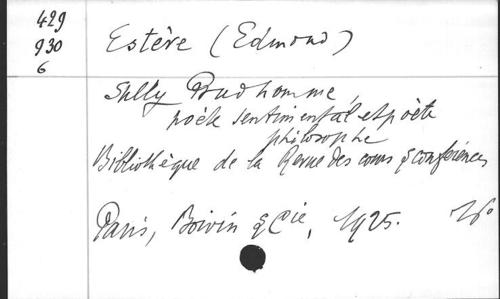 429
930
6
Estève (Edmond)
Sully Prudhomme,
poète sentimental et poète
philosophe
Bibliothèque de la Revue des cours & conférences
Paris, Boivin & Cie, 1925.